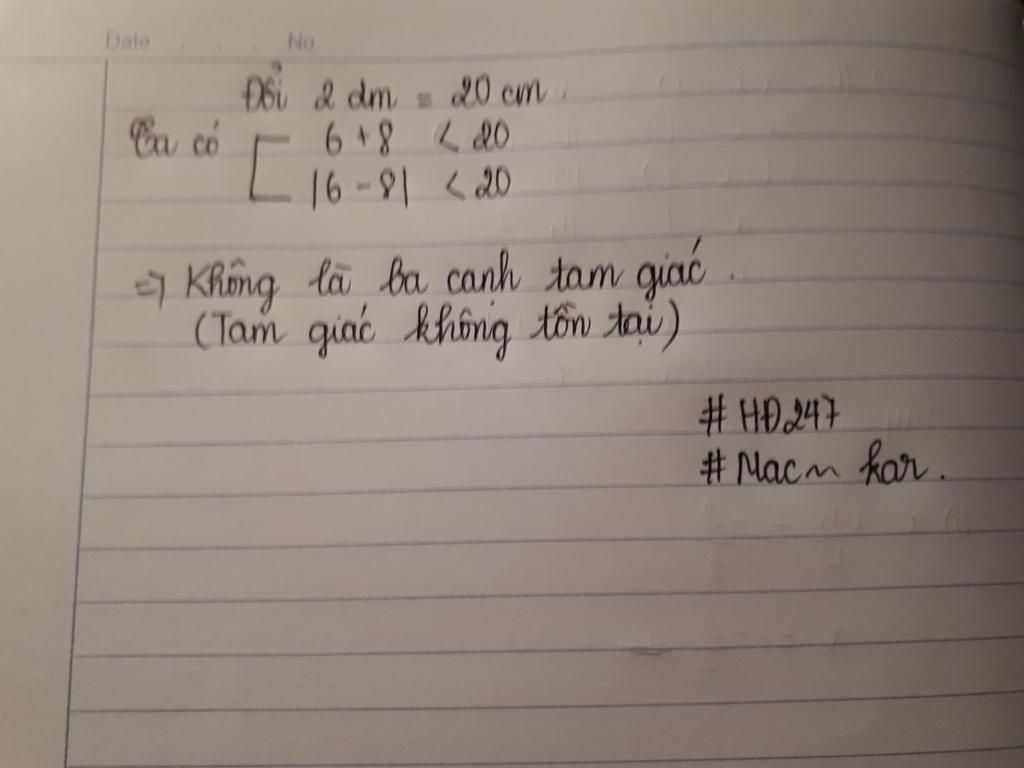 Date . . . No.
Đổi 2 dm = 20 cm.
Ta có [ 6 + 8 < 20
|6 - 8| < 20
=> Không là ba cạnh tam giác.
(Tam giác không tồn tại)
# HĐ247
# Mac~ kar.